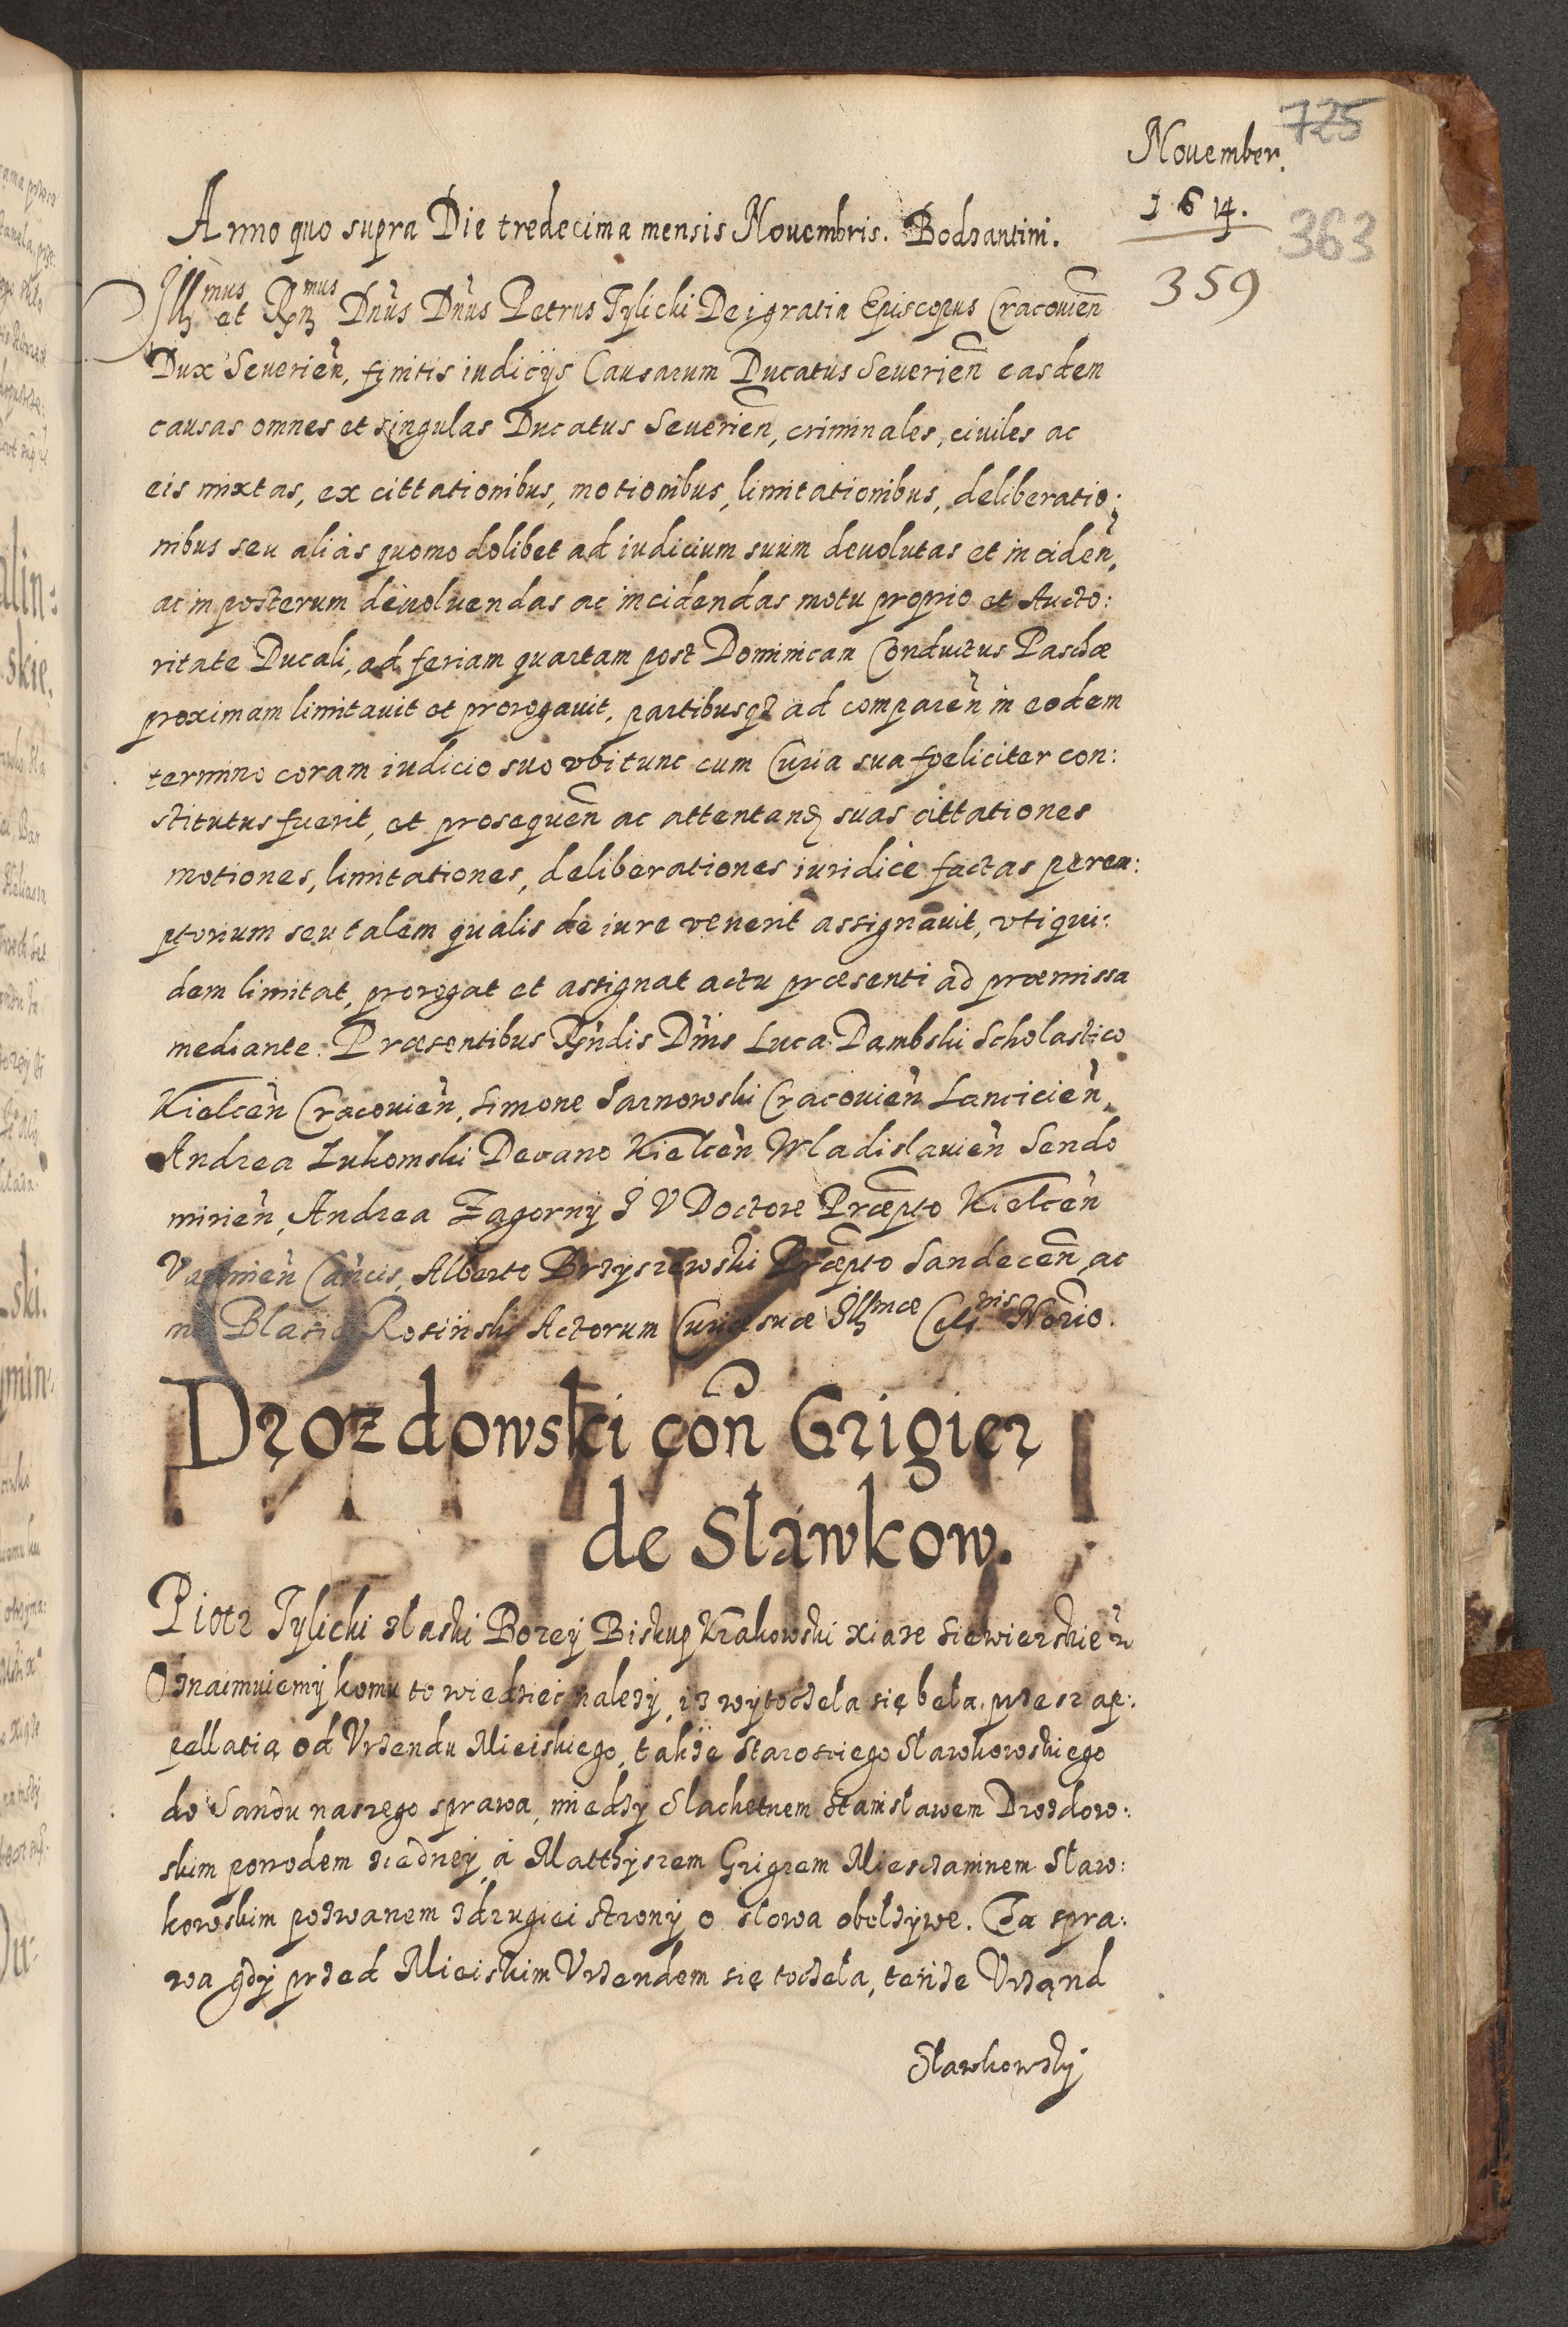 725
November.
1614.
363
359
Anno quo supra Die tredecima mensis Nouembris. Bodzantini.
Illmus et Rndmus Dnus Dnus Petrus Tylicki Dei gratia Episcopus Cracouien
Dux Seuerien, finitis iudicijs Causarum Ducatus Seuerien easdem
causas omnes et singulas Ducatus Seuerien, criminales, ciuiles ac
eis mixtas, ex cittationibus, motionibus, limitationibus, deliberatio:
nibus seu alias quomodolibet ad iudicium suum deuolutas et inciden,
ac in posterum deuoluendas ac incidendas motu proprio et Aucto:
ritate Ducali, ad feriam quartam post Dominicam Conductus Paschæ
proximam limitauit et prorogauit, partibusqz ad comparen in eodem
termino coram iudicio suo vbi tunc cum Curia sua fœliciter con:
stitutus fuerit, et prosequen ac attentand suas cittationes
motiones, limitationes, deliberationes iuridicè factas perem:
ptorium seu talem qualis de iure venerit assignauit, vti qui:
dem limitat, prorogat et assignat actu præsenti ad præmissa
mediante. Præsentibus Rndis Dnis Luca Dambski Scholastico
Kielcen Cracouien, Simone Sarnowski Cracouien Lancicien,
Andrea Lukomski Decano Kielcen Wladislauien Sendo
mirien, Andrea Zagorny I V Doctore Præpto Kielcen
Varmien Cancis, Alberto Brzyszewski Præpto Sandecen, ac
me Blasio Rosinski Actorum Curiæ suæ Illmæ Celsnis Norio.
Drozdowski con Grigier
de Sławkow.
Piotr Tylicki z łaski Bozey Biskup Krakowski xiąze Siewierskie
Oznaimuiemy komu to wiedzieć nalezy, iz wytoczeła się beła przez ap:
pellatią od Vrzendu Mieiskiego, takze Starosciego Sławkowskiego
do Sandu naszego sprawa, miedzy Slachetnem Stanisławem Drozdow:
skim powodem ziedney, á Matthyszem Grigrem Miesczaninem Sław:
kowskim pozwanem zdrugiei strony o słowa obelzywe. Ta spra:
wa gdy przed Mieiskim Vrzendem się toczeła, tenze Vrzand
Sławkowsky